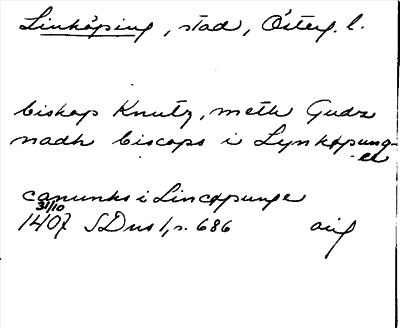 Linköping, stad, Österg. l.
biskop Knutz, meth Gudz
nadh biscops i Lynkøpung-
-e
canunks i Lincøpunge
31/10
1407 SDns 1, s. 686 orig